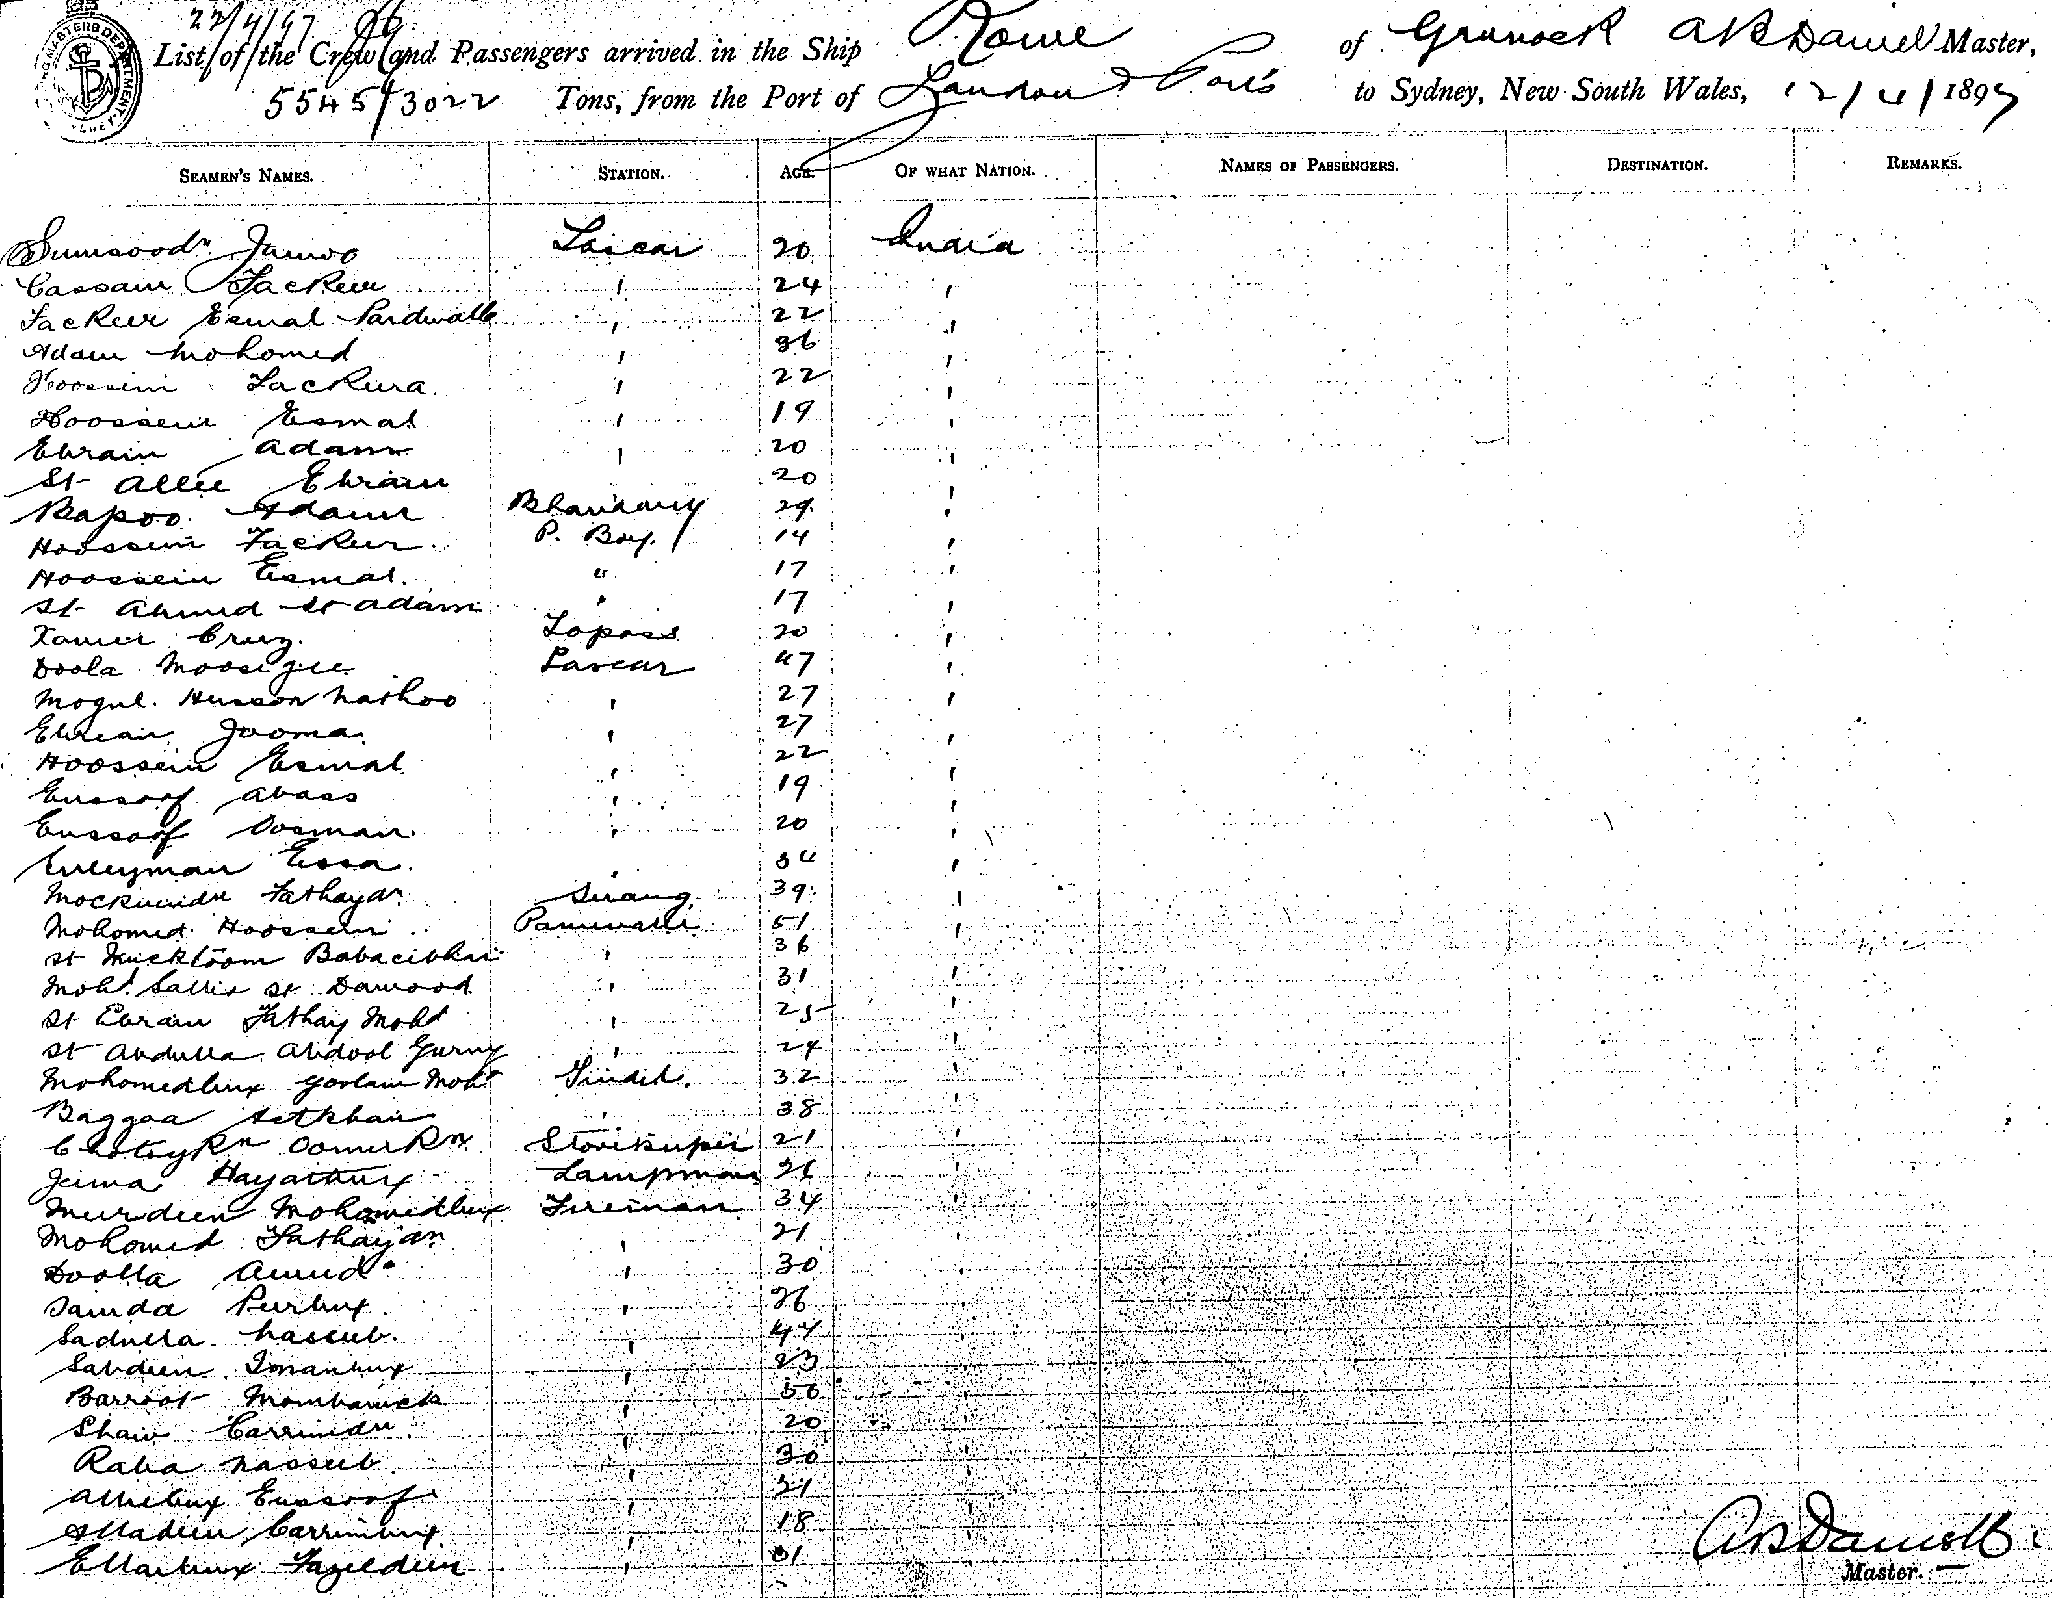 22/4/97
List of the Crew and Passengers arrived in the Ship Rome of Greenock A B Daniell Master,
5545/3022 Tons, from the Port of London & Ports to Sydney, New South Wales, 12/4/1897
SEAMEN'S NAMES. STATION. AGE. OF WHAT NATION. NAMES OF PASSENGERS. DESTINATION. REMARKS.
Jamoo Lascar 20 India
Cassam Fackeer " 24 "
Fackeer Esmal " 22 "
Adam Mohomed " 36 "
Hoossein Fackera " 22 "
Hoossein Esmal " 19 "
Ebraim Adam " 20 "
St Allee Ebraim 20 "
Bapoo Adam Bhandary 29 "
Hoossein Fackeer P. Boy. 14 "
Hoossein Esmal. " 17 "
St Ahmed St Adam " 17 "
Xavier Cruz. Topass 20 "
Doola Moosajee Lascar 47 "
Mogul. Husson Nathoo " 27 "
Ebraim Jooma. " 27 "
Hoossein Esmal " 22 "
Eussoof Abass " 19 "
Eussoof Oosman. " 20 "
Suleyman Essa. " 34 "
Fathayan Serang. 39 "
Mohomed Hoossein Panniwalla 51 "
St Mucktoom " 36 "
Mohd. Sallie St Dawood " 31 "
St Ebraim Fathay Mohd " 25 "
St Abdulla Abdool Gunny " 24 "
Mohomedbux Goolam Mohd Tindel. 32 "
Baggaa " 38 "
Storekeeper 21 "
Jeima Hayatbux Lampman 26 "
Meerdeen Mohomedbux Fireman 34 "
Mohomed Fathayan " 21 "
Doolla " 30 "
Peerbux. " 26 "
Sadulla Nasseeb. " 44 "
Sabdeen Imanbux " 23 "
" "
Shaw " 20 "
Raba Nasseeb. " 30 "
Alliebux Eussoof " 21 "
Alladeen Carrimbux. " 18 "
Ellaibux Fazeldeen " "
A B Daniell
Master.